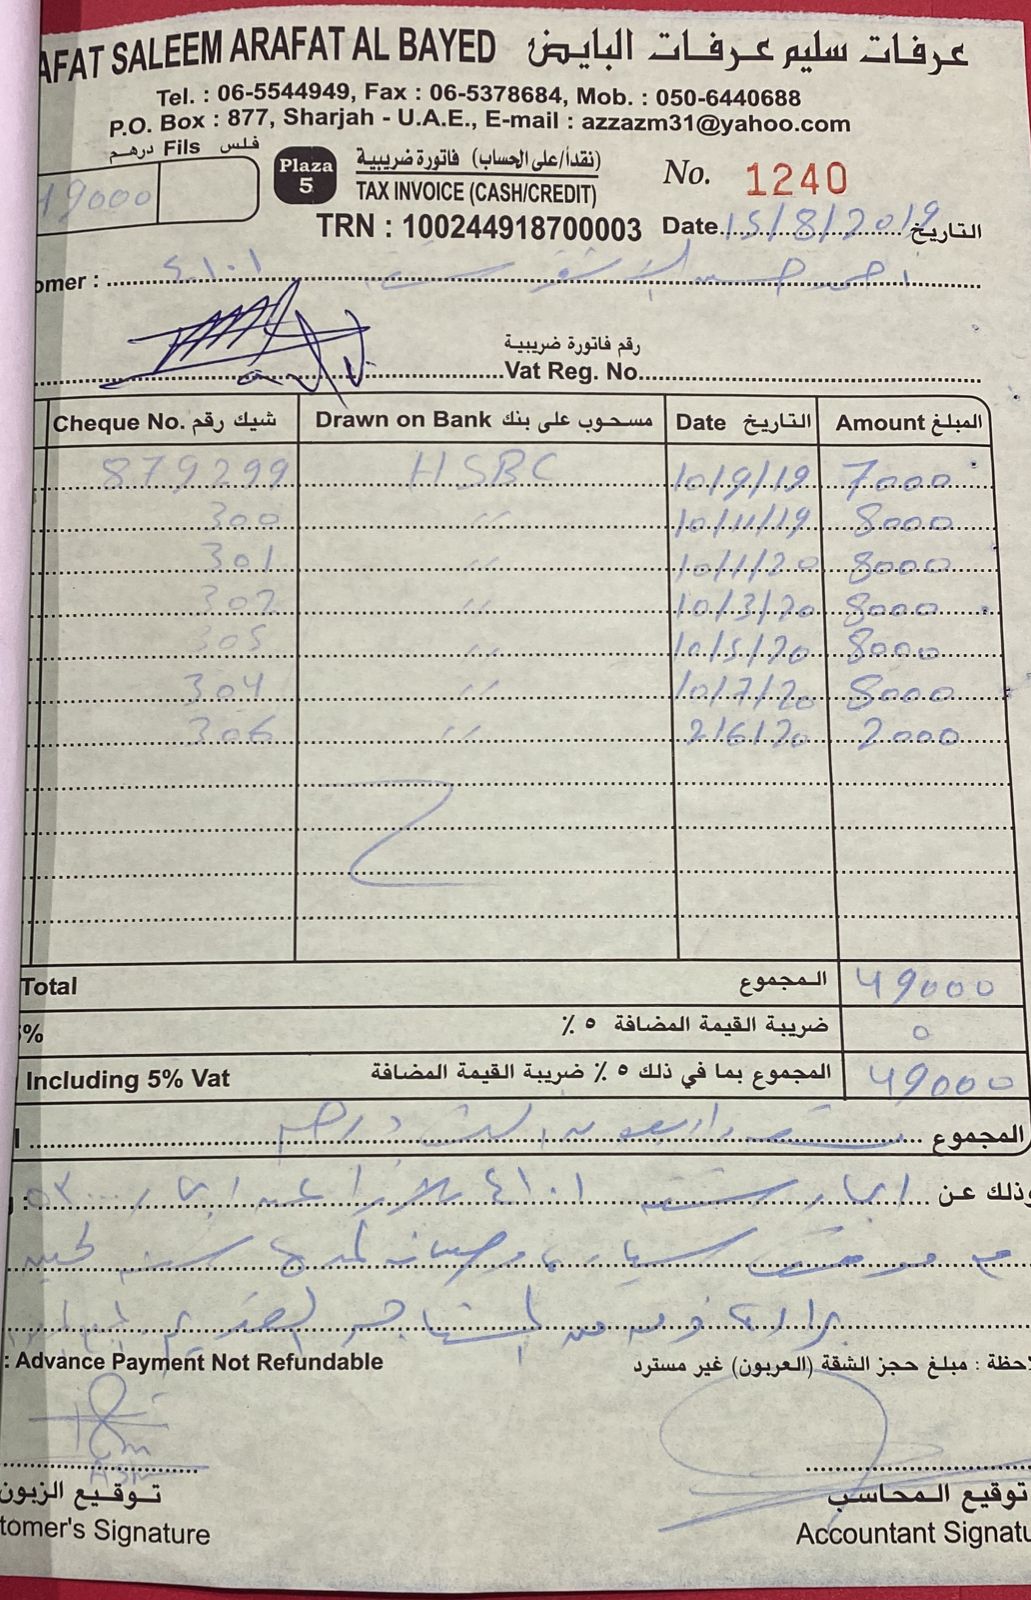 AFAT SALEEM ARAFAT AL BAYED عرفات سليم عرفات البايض
Tel. : 06-5544949, Fax : 06-5378684, Mob. : 050-6440688
P.O. Box : 877, Sharjah - U.A.E., E-mail : azzazm31@yahoo.com
درهم Fils فلس
49000
Plaza 5
فاتورة ضريبية (نقداً/على الحساب)
TAX INVOICE (CASH/CREDIT)
No. 1240
TRN : 100244918700003 Date 15/8/2019 التاريخ
omer : ٤١٠١
رقم فاتورة ضريبية
Vat Reg. No.
Cheque No. شيك رقم Drawn on Bank مسحوب على بنك Date التاريخ Amount المبلغ
879299 HSBC 10/9/19 7000
300 " 10/11/19 8000
301 " 10/1/20 8000
302 " 10/3/20 8000
305 " 10/5/20 8000
304 " 10/7/20 8000
306 " 2/6/20 2000
Total المجموع 49000
% ضريبة القيمة المضافة ٥ ٪ 0
Including 5% Vat المجموع بما في ذلك ٥ ٪ ضريبة القيمة المضافة 49000
المجموع تسعة واربعون الف درهم
وذلك عن ايجار شقة ٤١٠١
: Advance Payment Not Refundable
احظة : مبلغ حجز الشقة (العربون) غير مسترد
توقيع الزبون
tomer's Signature
توقيع المحاسب
Accountant Signatu